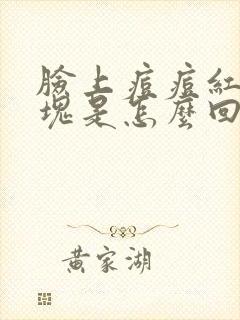 臉上痘痘紅
塊是怎麼回
黃家湖